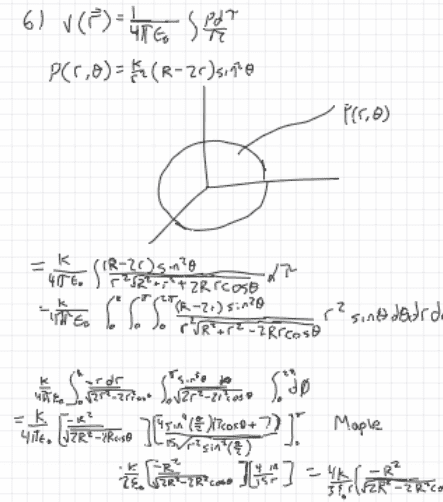 6) V(r⃗) = 1/4πε₀ ∫ ρdτ/r
ρ(r,θ) = k/r² (R-2r) sin²θ
ρ(r,θ)
= k/4πε₀ ∫ (R-2r) sin²θ / r²√R²+r²+2Rrcosθ dτ
= k/4πε₀ ∫₀ᴿ ∫₀^π ∫₀^2π (R-2r) sin²θ / r²√R²+r²-2Rrcosθ r² sinθ dθ dr d
k/4πε₀ ∫₀ᴿ -r dr / √2r²-2r²cosθ ∫₀^π sin³θ dθ / √2r²-2r²cosθ ∫₀^2π dØ
= k/4πε₀ [-R² / √2R²-2Rcosθ] [4 sin⁴(θ/2)(5cosθ+7) / 15√r² sin²(θ/2)]₀^π Maple
k/2ε₀ [-R² / √2R²-2R²cosθ] [ ] = 4k/ [-R² / √2R²-2R²co